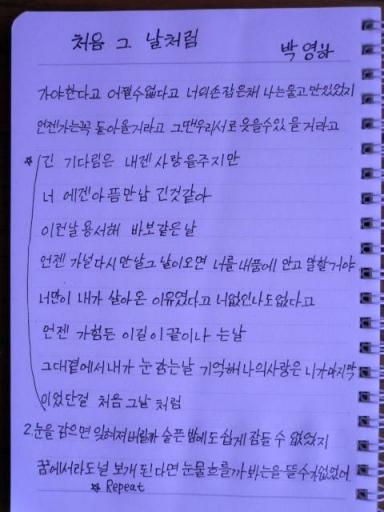 처음 그 날처럼
박영하
가야한다고 어쩔수없다고 너의손 잡은채 나는울고만있었지
언젠가는꼭 돌아올거라고 그땐우리서로 웃을수있을거라고
* 긴 기다림은 내겐 사랑을주지만
너 에겐아픔만남 긴것같아
이런날 용서해 바보같은날
언젠 가널다시 만날그 날이오면 너를 내품에 안고 말할거야
너만이 내가 살아온 이유였다고 너없인나도없다고
언젠 가힘든 이길이 끝이나 는날
그대곁에서내가 눈감는날 기억해나의사랑은 니가마지막
이었단걸 처음 그날 처럼
2. 눈을 감으면 잊혀져버릴까 슬픈 밤에도 쉽게 잠들 수 없었지
꿈에서라도널 보개 된다면 눈물 흐를까 봐눈을 뜰 수가없었어
* Repeat